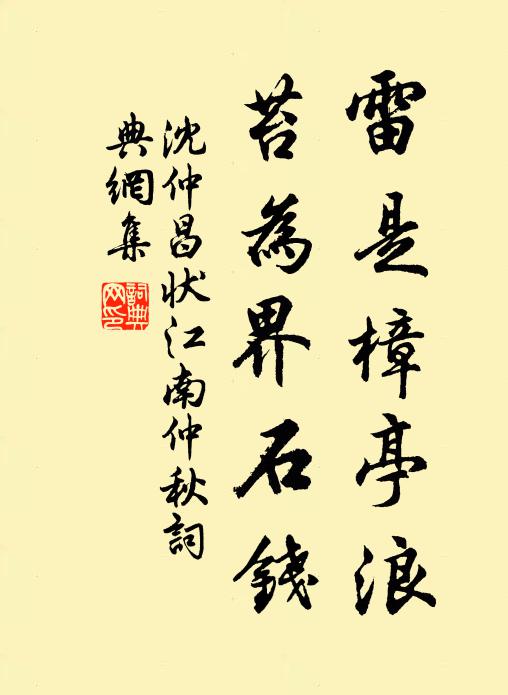 雷是樟亭浪
苔為界石錢
沈仲昌狀江南仲秋詞
典網集
詞典網印